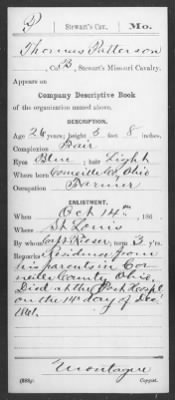 P | Stewart's Cav. | Mo.
Thomas Patterson
, Co. B, Stewart's Missouri Cavalry.
Appears on
Company Descriptive Book
of the organization named above.
DESCRIPTION.
Age 26 years; height 5 feet 8 inches.
Complexion Fair
Eyes Blue ; hair Light
Where born Ohio
Occupation Farmer
ENLISTMENT.
When Oct 14th, 186
Where St Louis
By whom Capt ; term 3 y'rs.
Remarks Residence from
his parents in Cor
neiles County Ohio.
Died at the Post Hospt
on the 14" day of Dec.
1861.
Montague
Copyist.